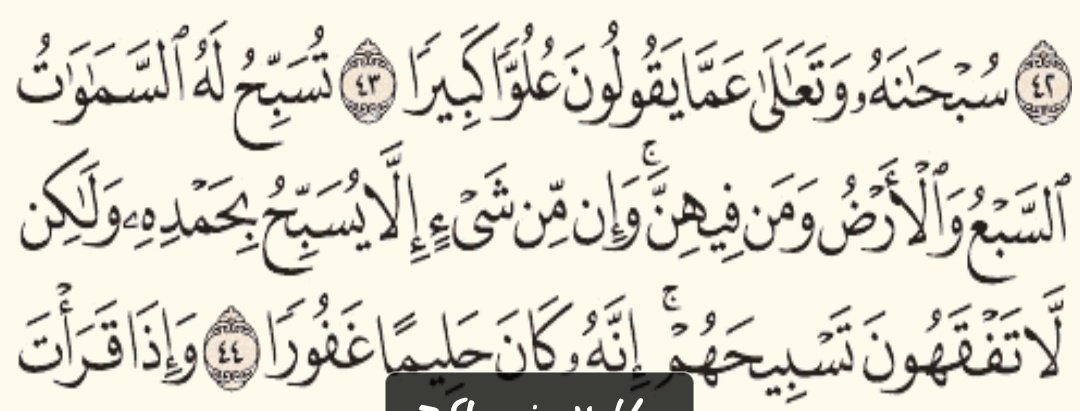 ٤٢ سُبْحَٰنَهُۥ وَتَعَٰلَىٰ عَمَّا يَقُولُونَ عُلُوًّا كَبِيرًا ٤٣ تُسَبِّحُ لَهُ ٱلسَّمَٰوَٰتُ
ٱلسَّبْعُ وَٱلْأَرْضُ وَمَن فِيهِنَّ ۚ وَإِن مِّن شَىْءٍ إِلَّا يُسَبِّحُ بِحَمْدِهِۦ وَلَٰكِن
لَّا تَفْقَهُونَ تَسْبِيحَهُمْ ۚ إِنَّهُۥ كَانَ حَلِيمًا غَفُورًا ٤٤ وَإِذَا قَرَأْتَ